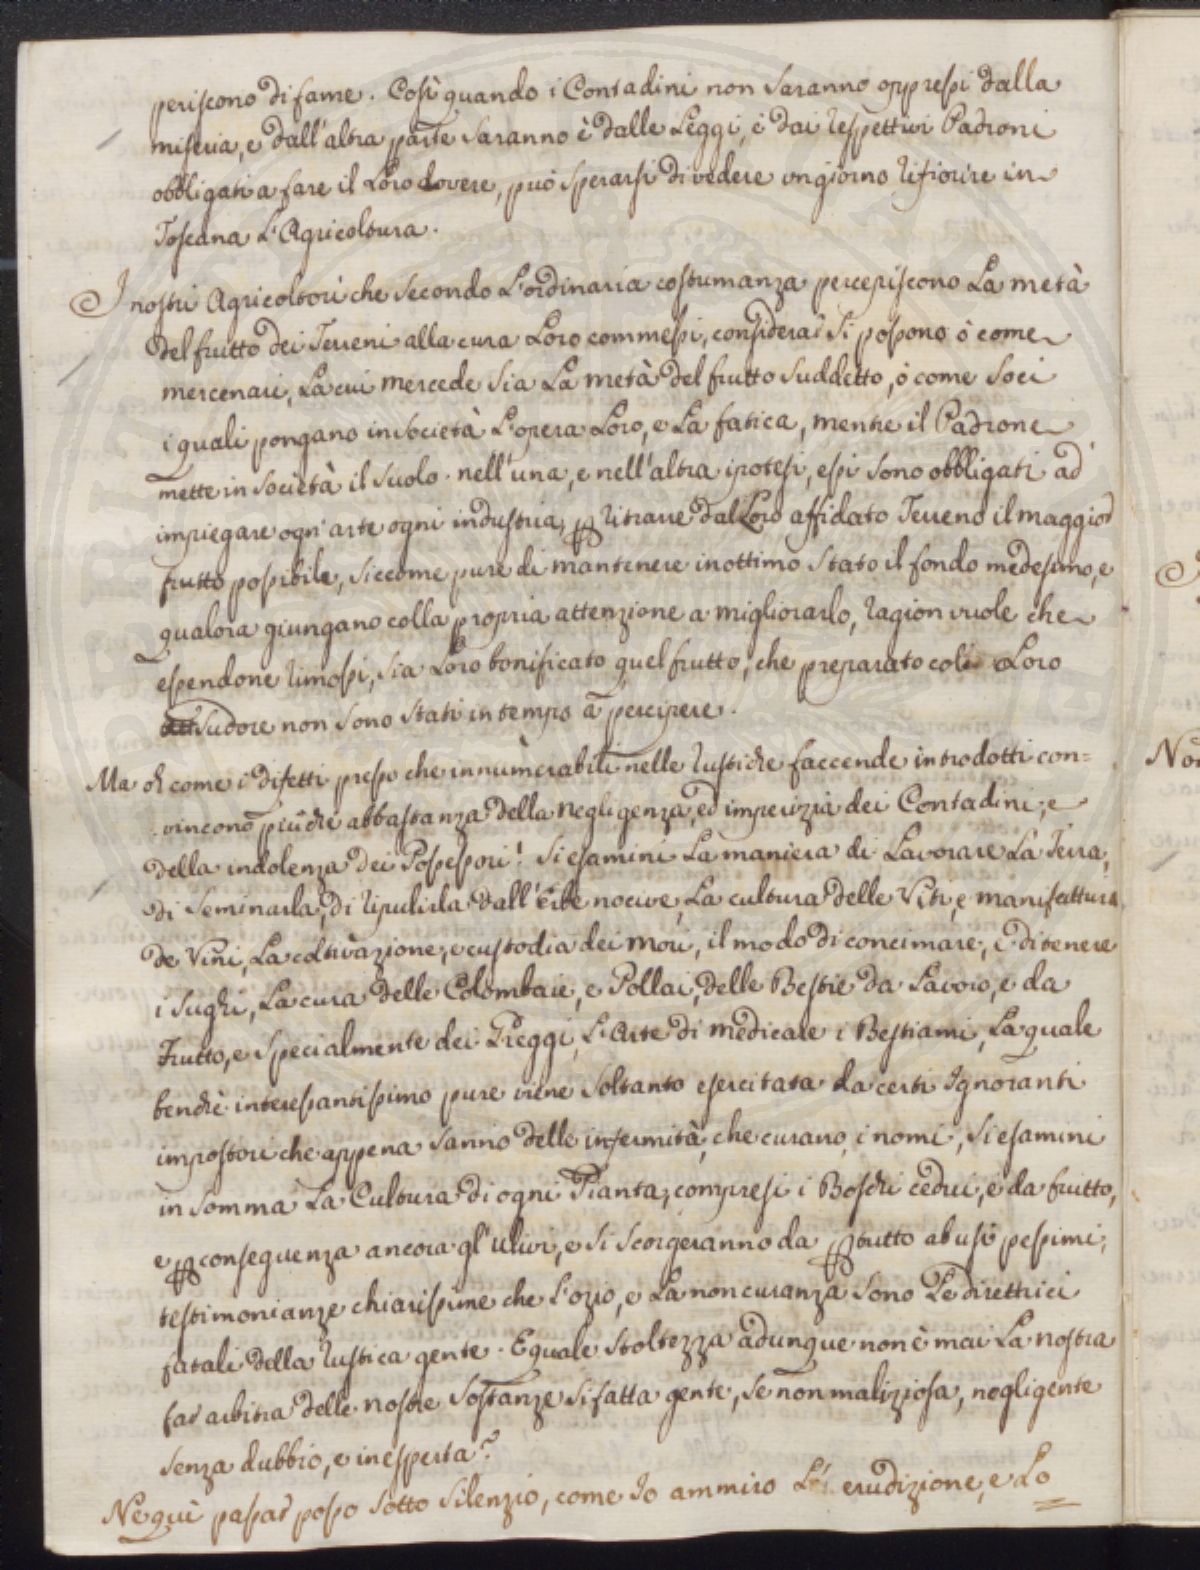 periscono di fame. Così quando i Contadini non Saranno oppressi dalla
miseria, e dall'altra parte Saranno è dalle Leggi, è dai respettivi Padroni
obbligati a fare il Loro dovere, può sperarsi di vedere un giorno rifiorire in
Toscana L'Agricoltura.
I nostri Agricoltori che Secondo L'ordinaria costumanza percepiscono La metà
del frutto dei Terreni alla cura Loro commessi, considerar Si possono ò come
mercenari, La cui mercede Sia La metà del frutto Suddetto, ò come Soci
i quali pongano in Società L'opera Loro, e La fatica, mentre il Padrone
mette in Società il Suolo. nell'una, e nell'altra ipotesi, essi Sono obbligati ad
impiegare ogn'arte ogni industria, p ritrarre dal Loro affidato Terreno il maggior
frutto possibile, Siccome pure di mantenere in ottimo Stato il fondo medesimo, e
qualora giungano colla propria attenzione a migliorarlo, ragion vuole che
essendone rimossi, Sia Loro bonificato quel frutto, che preparato col Loro
Sudore non Sono Stati in tempo à percipere.
Ma oh come i difetti presso che innumerabili nelle rustiche faccende introdotti con=
vincono più che abbastanza della negligenza, ed imperizia dei Contadini, e
della indolenza dei Possessori! Si esamini La maniera di Lavorare La Terra,
di Seminarla, di ripulirla dall'Erbe nocive, La cultura delle Viti, e manifattura
de Vini, La coltivazione, e custodia dei mori, il modo di concimare, e di tenere
i Sughi, La cura delle Colombaie, e Pollai, delle Bestie da Lavoro, e da
Frutto, e Specialmente dei Greggi, L'Arte di medicare i Bestiami, La quale
benchè interessantissimo pure viene Soltanto esercitata da certi Ignoranti
impostori che appena Sanno delle infermità, che curano, i nomi, Si esamini
in Somma La Cultura di ogni Pianta, compresi i Boschi cedui, e da frutto,
e p conseguenza ancora gl'Ulivi, e Si Scorgeranno da p tutto abusi pessimi,
testimonianze chiarissime che L'ozio, e La non curanza Sono Le direttrici
fatali della rustica gente. E quale Stoltezza adunque non è mai La nostra
far arbitra delle nostre Sostanze Si fatta gente, Se non maliziosa, negligente
Senza dubbio, e inesperta?
Ne quì passar posso Sotto Silenzio, come Io ammiro L' erudizione, e Lo